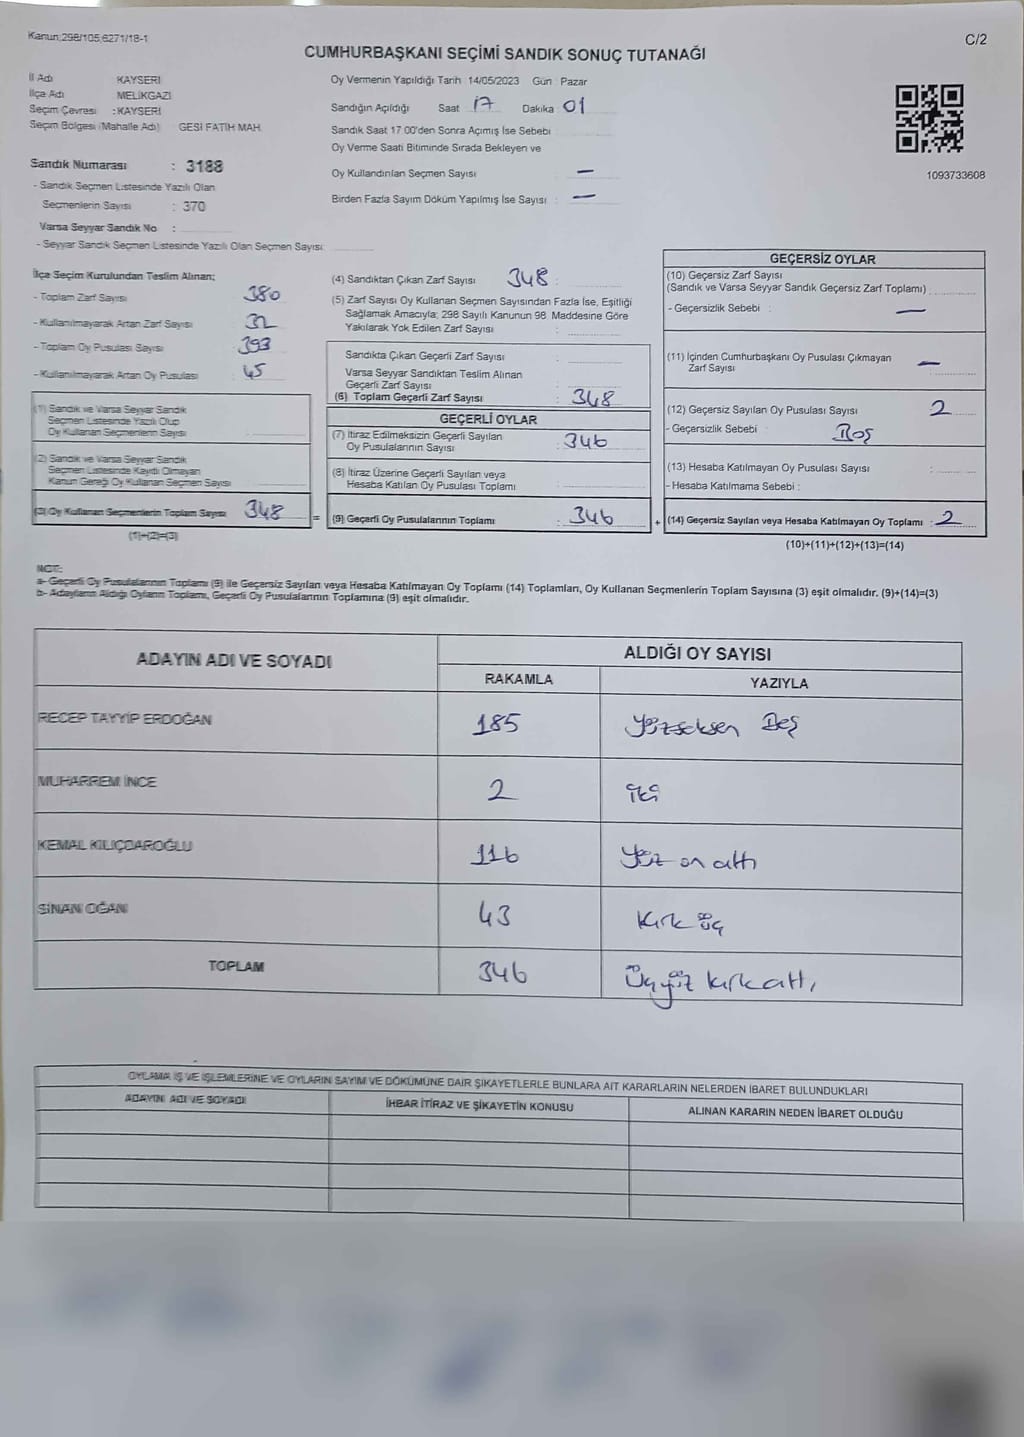 Kanun:298/105,6271/18-1
C/2
CUMHURBAŞKANI SEÇİMİ SANDIK SONUÇ TUTANAĞI
İl Adı KAYSERİ
İlçe Adı MELİKGAZİ
Seçim Çevresi : KAYSERİ
Seçim Bölgesi (Mahalle Adı) GESİ FATİH MAH.
Sandık Numarası : 3188
- Sandık Seçmen Listesinde Yazılı Olan
Seçmenlerin Sayısı : 370
Varsa Seyyar Sandık No :
- Seyyar Sandık Seçmen Listesinde Yazılı Olan Seçmen Sayısı:
Oy Vermenin Yapıldığı Tarih : 14/05/2023 Gün : Pazar
Sandığın Açıldığı Saat 17 Dakika 01
Sandık Saat 17.00'den Sonra Açımış İse Sebebi
Oy Verme Saati Bitiminde Sırada Bekleyen ve
Oy Kullandırılan Seçmen Sayısı : —
Birden Fazla Sayım Döküm Yapılmış İse Sayısı : —
1093733608
İlçe Seçim Kurulundan Teslim Alınan;
- Toplam Zarf Sayısı 380
- Kullanılmayarak Artan Zarf Sayısı 32
- Toplam Oy Pusulası Sayısı 393
- Kullanılmayarak Artan Oy Pusulası 45
(1) Sandık ve Varsa Seyyar Sandık
Seçmen Listesinde Yazılı Olup
Oy Kullanan Seçmenlerin Sayısı
(2) Sandık ve Varsa Seyyar Sandık
Seçmen Listesinde Kayıtlı Olmayan
Kanun Gereği Oy Kullanan Seçmen Sayısı
(3) Oy Kullanan Seçmenlerin Toplam Sayısı 348
(1)+(2)=(3)
(4) Sandıktan Çıkan Zarf Sayısı 348
(5) Zarf Sayısı Oy Kullanan Seçmen Sayısından Fazla İse, Eşitliği
Sağlamak Amacıyla; 298 Sayılı Kanunun 98. Maddesine Göre
Yakılarak Yok Edilen Zarf Sayısı :
Sandıkta Çıkan Geçerli Zarf Sayısı :
Varsa Seyyar Sandıktan Teslim Alınan
Geçerli Zarf Sayısı :
(6) Toplam Geçerli Zarf Sayısı : 348
GEÇERLİ OYLAR
(7) İtiraz Edilmeksizin Geçerli Sayılan
Oy Pusulalarının Sayısı : 346
(8) İtiraz Üzerine Geçerli Sayılan veya
Hesaba Katılan Oy Pusulası Toplamı :
= (9) Geçerli Oy Pusulalarının Toplamı : 346
GEÇERSİZ OYLAR
(10) Geçersiz Zarf Sayısı
(Sandık ve Varsa Seyyar Sandık Geçersiz Zarf Toplamı) :
- Geçersizlik Sebebi : —
(11) İçinden Cumhurbaşkanı Oy Pusulası Çıkmayan
Zarf Sayısı : —
(12) Geçersiz Sayılan Oy Pusulası Sayısı : 2
- Geçersizlik Sebebi : Boş
(13) Hesaba Katılmayan Oy Pusulası Sayısı :
- Hesaba Katılmama Sebebi :
+ (14) Geçersiz Sayılan veya Hesaba Katılmayan Oy Toplamı : 2
(10)+(11)+(12)+(13)=(14)
NOT:
a- Geçerli Oy Pusulalarının Toplamı (9) ile Geçersiz Sayılan veya Hesaba Katılmayan Oy Toplamı (14) Toplamları, Oy Kullanan Seçmenlerin Toplam Sayısına (3) eşit olmalıdır. (9)+(14)=(3)
b- Adayların Aldığı Oyların Toplamı, Geçerli Oy Pusulalarının Toplamına (9) eşit olmalıdır.
ADAYIN ADI VE SOYADI ALDIĞI OY SAYISI
RAKAMLA YAZIYLA
RECEP TAYYİP ERDOĞAN 185 Yüzseksen Beş
MUHARREM İNCE 2 iki
KEMAL KILIÇDAROĞLU 116 Yüz on altı
SİNAN OĞAN 43 Kırk üç
TOPLAM 346 Üçyüz kırkaltı
OYLAMA İŞ VE İŞLEMLERİNE VE OYLARIN SAYIM VE DÖKÜMÜNE DAİR ŞİKAYETLERLE BUNLARA AİT KARARLARIN NELERDEN İBARET BULUNDUKLARI
ADAYIN ADI VE SOYADI İHBAR İTİRAZ VE ŞİKAYETİN KONUSU ALINAN KARARIN NEDEN İBARET OLDUĞU